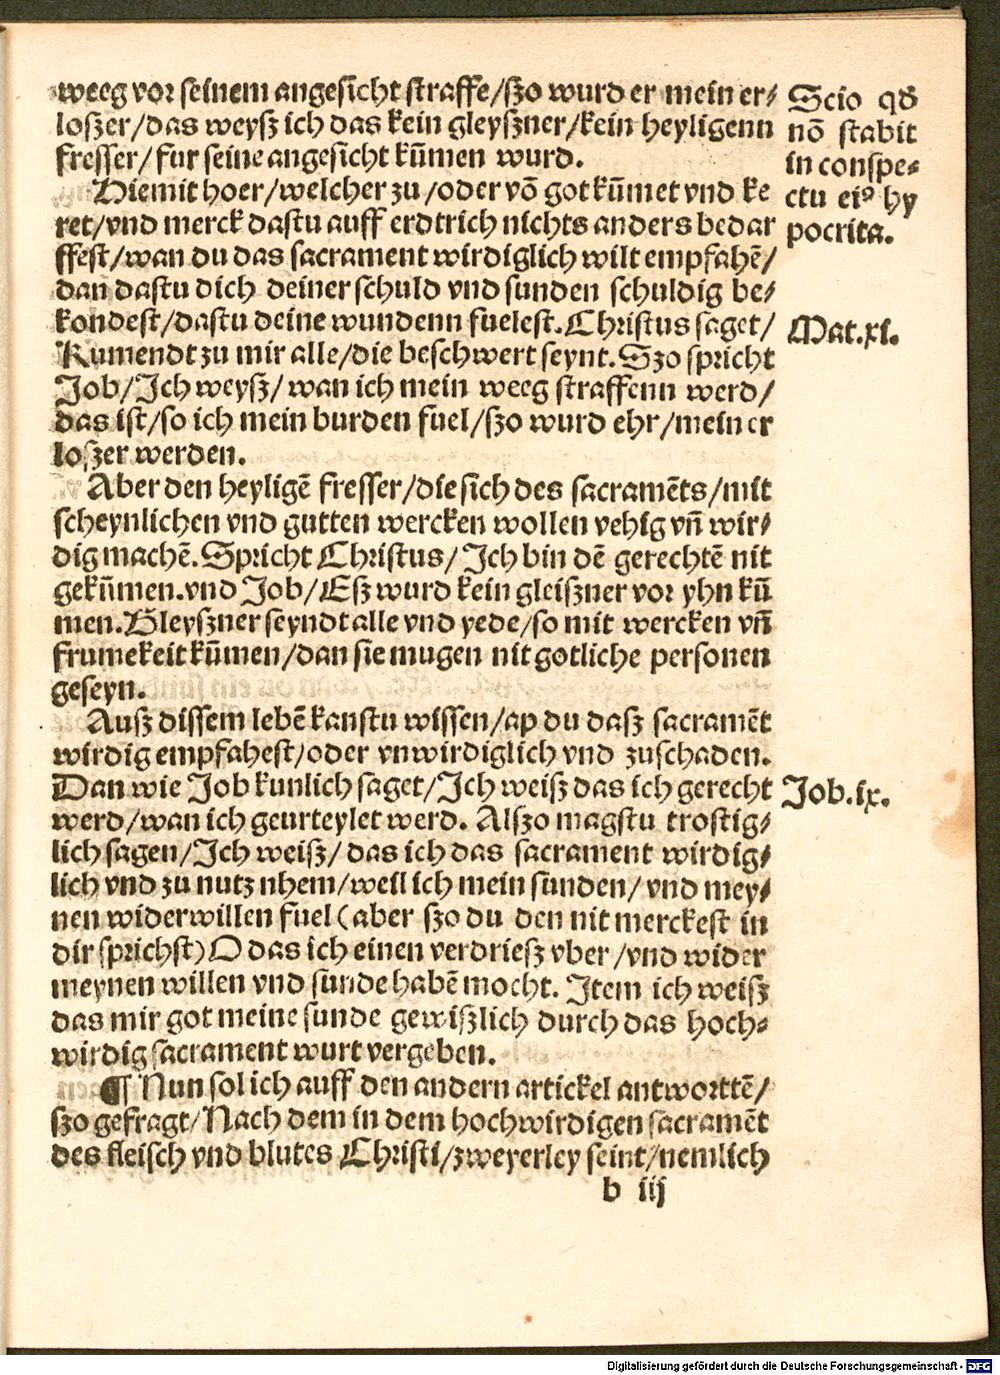 weeg vor seinem angesicht straffe/szo wurd er mein er-
loszer/das weysz ich das kein gleyszner/kein heyligenn
fresser/fur seine angesicht kūmen wurd.
Hiemit hoer/welcher zu/oder vō got kūmet vnd ke
ret/vnd merck dastu auff erdtrich nichts anders bedar
ffest/wan du das sacrament wirdiglich wilt empfahē/
dan dastu dich deiner schuld vnd sunden schuldig be-
kondest/dastu deine wundenn fuelest. Christus saget/
Kumendt zu mir alle/die beschwert seynt. Szo spricht
Job/Jch weysz/wan ich mein weeg straffenn werd/
das ist/so ich mein burden fuel/szo wurd ehr/mein er
loszer werden.
Aber den heyligē fresser/die sich des sacramēts/mit
scheynlichen vnd gutten wercken wollen vehig vn̄ wir-
dig machē. Spricht Christus/Jch bin dē gerechtē nit
gekūmen. vnd Job/Esz wurd kein gleiszner vor yhn kū
men. Gleyszner seyndt alle vnd yede/so mit wercken vn̄
frumekeit kūmen/dan sie mugen nit gotliche personen
geseyn.
Ausz dissem lebē kanstu wissen/ap du dasz sacramēt
wirdig empfahest/oder vnwirdiglich vnd zuschaden.
Dan wie Job kunlich saget/Jch weisz das ich gerecht
werd/wan ich geurteylet werd. Alszo magstu trostig-
lich sagen/Jch weisz/das ich das sacrament wirdig-
lich vnd zu nutz nhem/weil ich mein sunden/vnd mey-
nen widerwillen fuel (aber szo du den nit merckest in
dir sprichst) O das ich einen verdriesz vber/vnd wider
meynen willen vnd sunde habē mocht. Jtem ich weisz
das mir got meine sunde gewiszlich durch das hoch-
wirdig sacrament wurt vergeben.
¶ Nun sol ich auff den andern artickel antworttē/
szo gefragt/Nach dem in dem hochwirdigen sacramēt
des fleisch vnd blutes Christi/zweyerley seint/nemlich
b iij
Scio qđ
nō stabit
in conspe-
ctu eiꝰ hy
pocrita.
Mat.xi.
Job.ix.
Digitalisierung gefördert durch die Deutsche Forschungsgemeinschaft - DFG